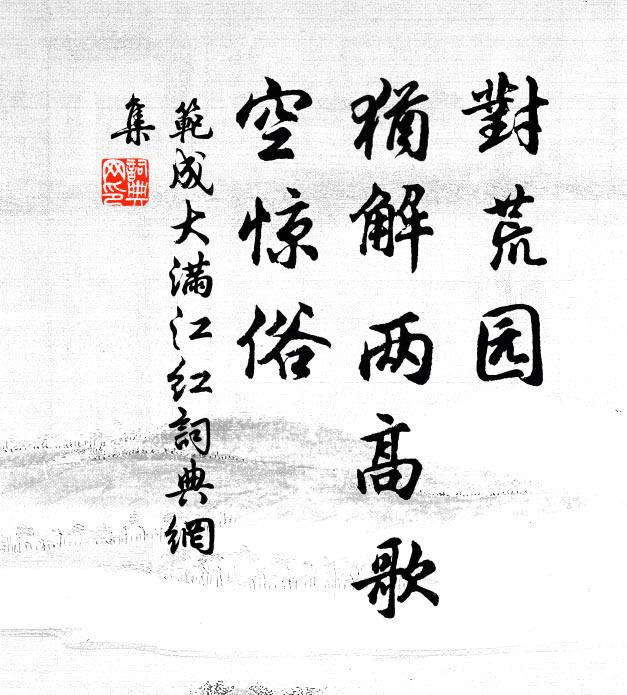 對荒园
猶解两高歌
空惊俗
範成大満江红詞典網
集
詞典网印